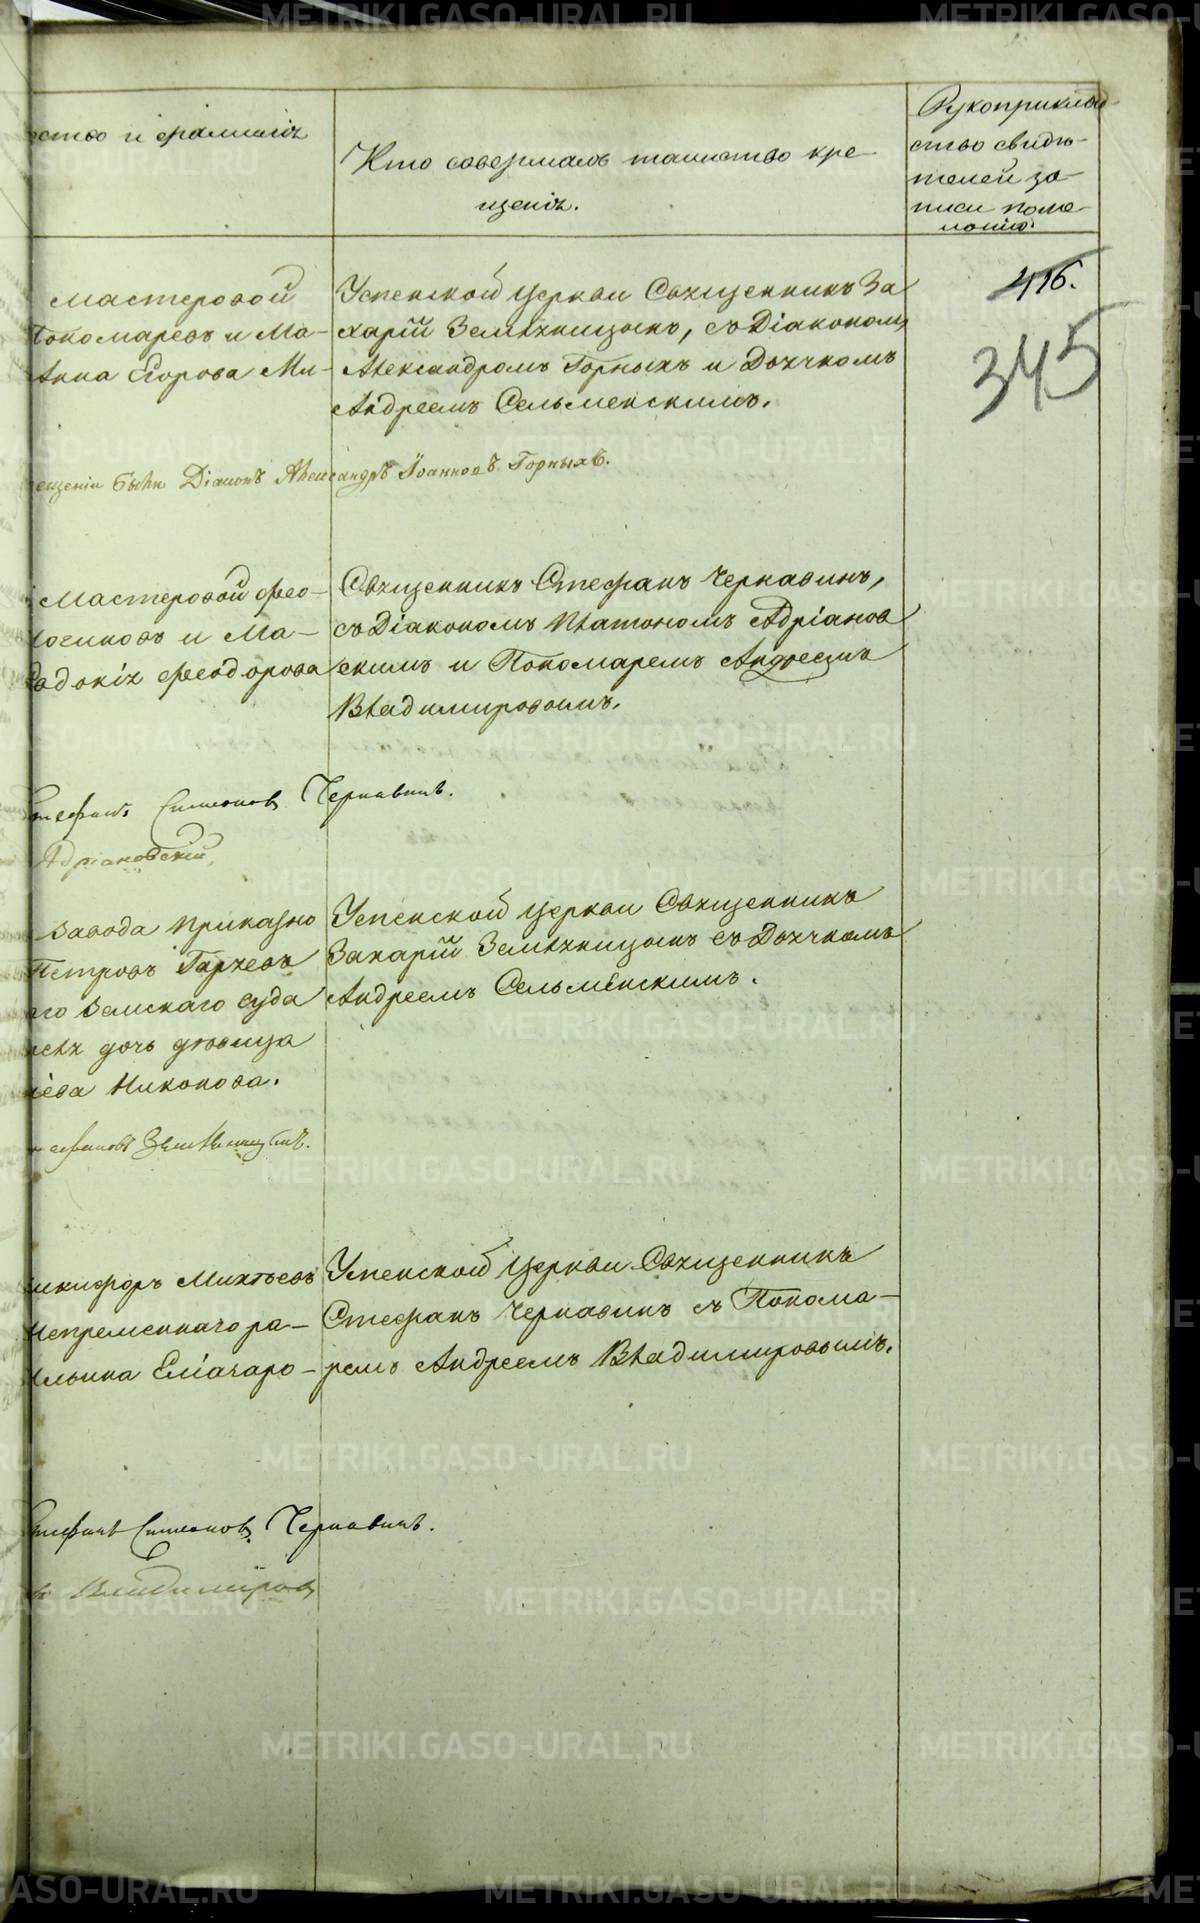 ство и фамилія
Кто совершалъ таинство кре-
щенія.
Рукоприклад
ство свидѣ-
телей за-
писи поже-
ланію.
416.
345
мастеровой
Пономаревъ и Ма-
Анна Егорова Ми-
Успенской церкви Священникъ За
харій Земляницынъ, съ Діакономъ
Александромъ Горныхъ и Дьячкомъ
Андреемъ Сельменскимъ.
ещеніи были Діаконъ Александръ Іоанновъ Горныхъ.
Мастеровой Фео-
и Ма-
вдокія Феодорова
Священникъ Стефанъ Чернавинъ,
съ Діакономъ Платономъ Адріанов
скимъ и Пономаремъ Андреемъ
Владимировымъ.
Стефанъ Симеоновъ Чернавинъ.
Адріановскій.
завода приказно
Петровъ Гаряевъ
аго Земскаго суда
дочь дѣвица
Никонова.
Успенской церкви Священникъ
Захарій Земляницынъ съ Дьячкомъ
Андреемъ Сельменскимъ.
Земляницынъ.
икифоръ Михѣевъ
Непременнаго ра-
Успенской церкви Священникъ
Стефанъ Чернавинъ съ Понома-
ремъ Андреемъ Владимировымъ.
Стефанъ Симеоновъ Чернавинъ.
Владимировъ
METRIKI.GASO-URAL.RU